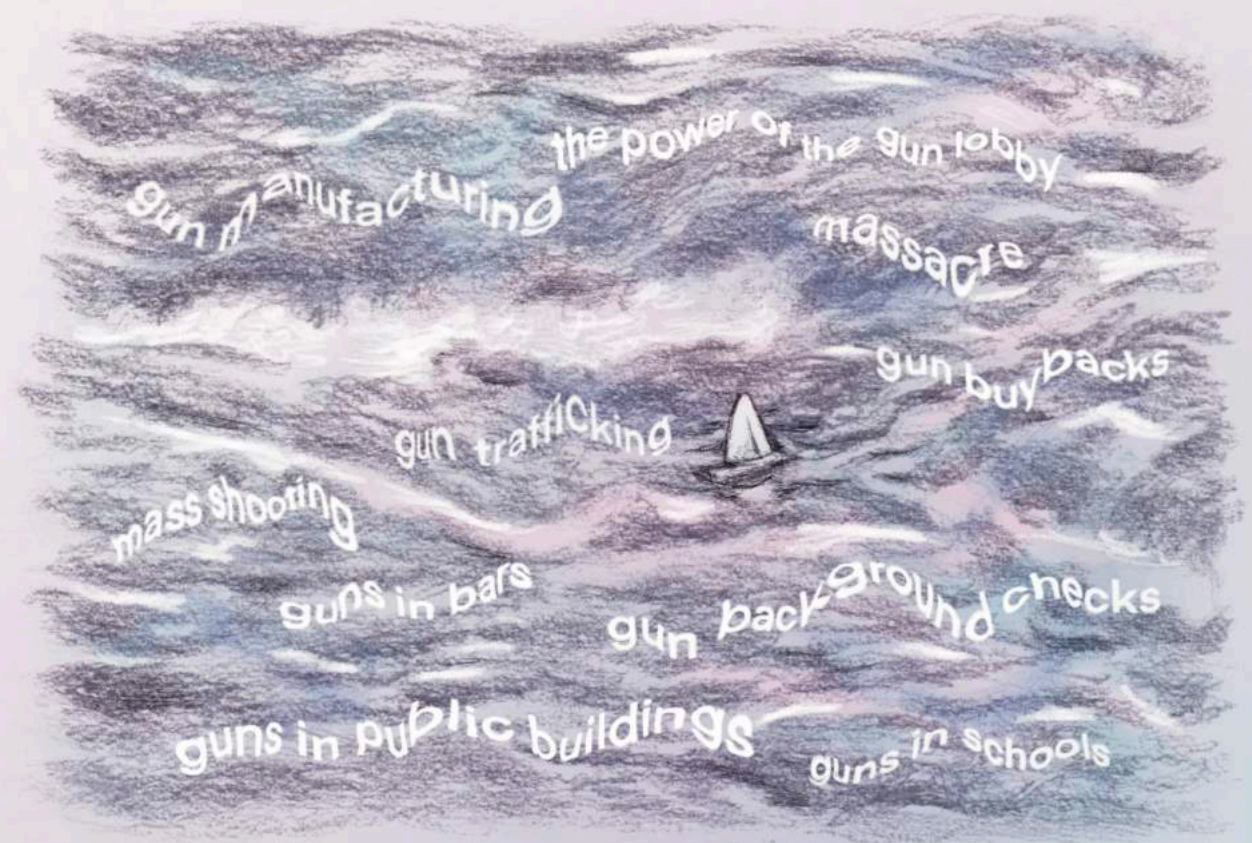 the power of the gun lobby
gun manufacturing
massacre
gun buybacks
gun trafficking
mass shooting
guns in bars
gun background checks
guns in public buildings
guns in schools